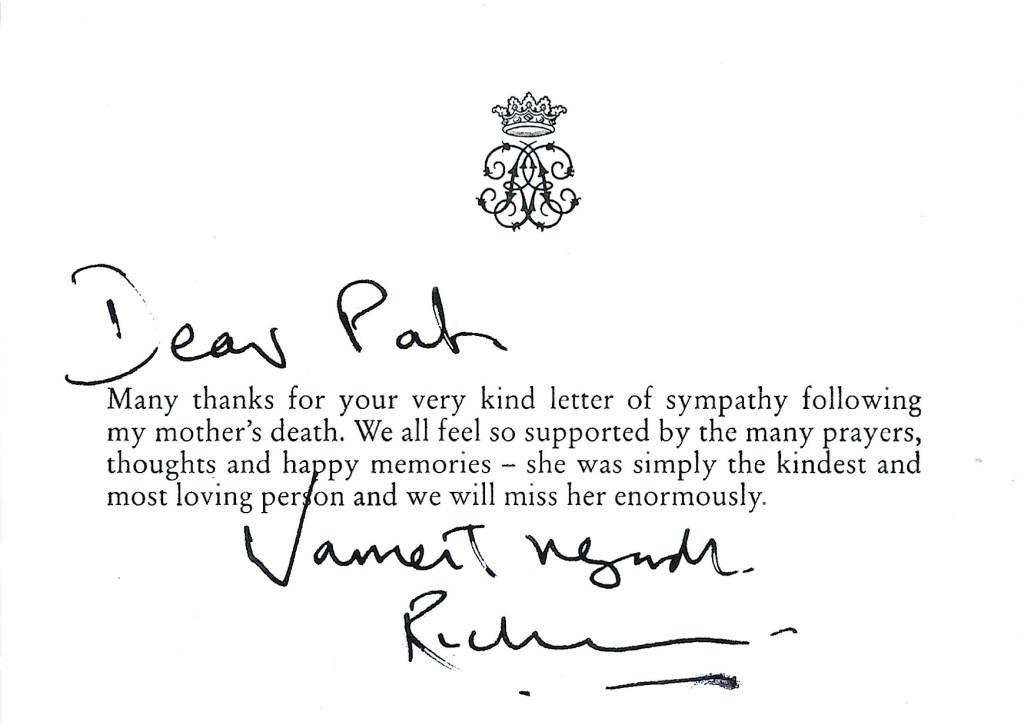 Dear Pat
Many thanks for your very kind letter of sympathy following
my mother's death. We all feel so supported by the many prayers,
thoughts and happy memories – she was simply the kindest and
most loving person and we will miss her enormously.
Warmest regards.